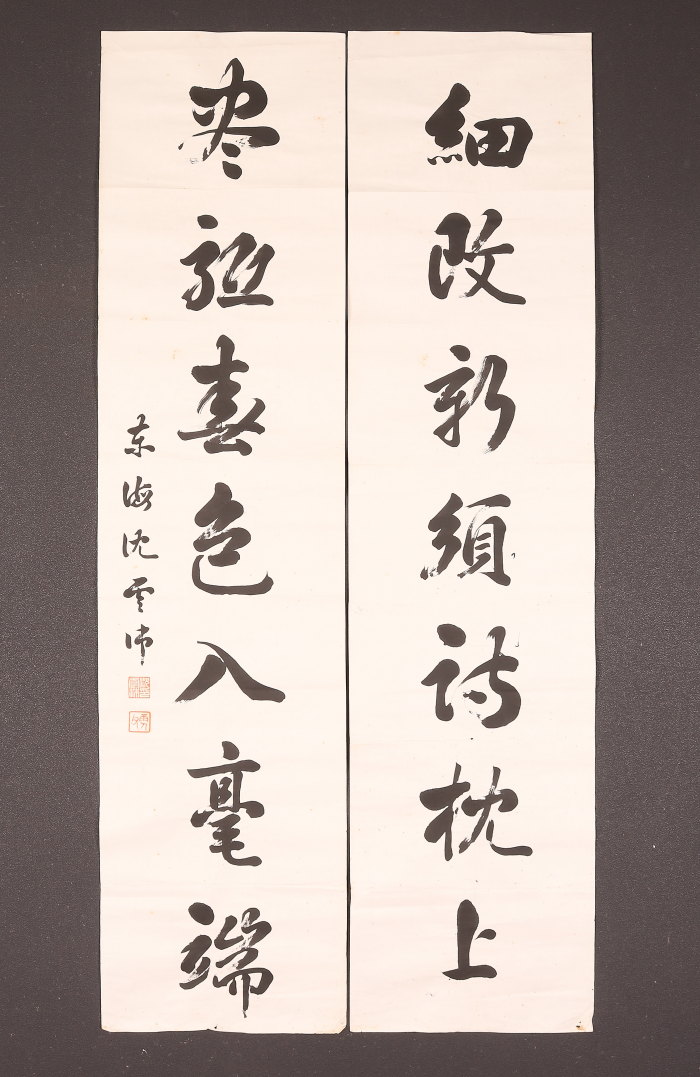 細改新須詩枕上
盡驅春色入毫端
東海沈雲沛